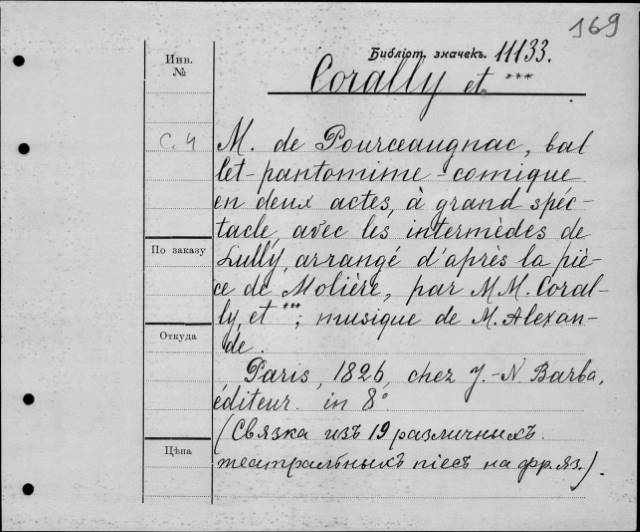 169
Инв.
№
Библіот. значекъ. 11133.
Corally et ***
С. 4
M. de Pourceaugnac, bal
let-pantomime-comique
en deux actes, à grand spéc-
tacle, avec les intermèdes de
Lully, arrangé d'après la piè-
ce de Molière, par MM. Coral-
ly, et ***; musique de M. Alexan-
dre.
По заказу
Откуда
Paris, 1826, chez J.-N. Barba,
éditeur. in 8°
(Связка изъ 19 различныхъ
театральныхъ піесъ на фр. яз.).
Цѣна